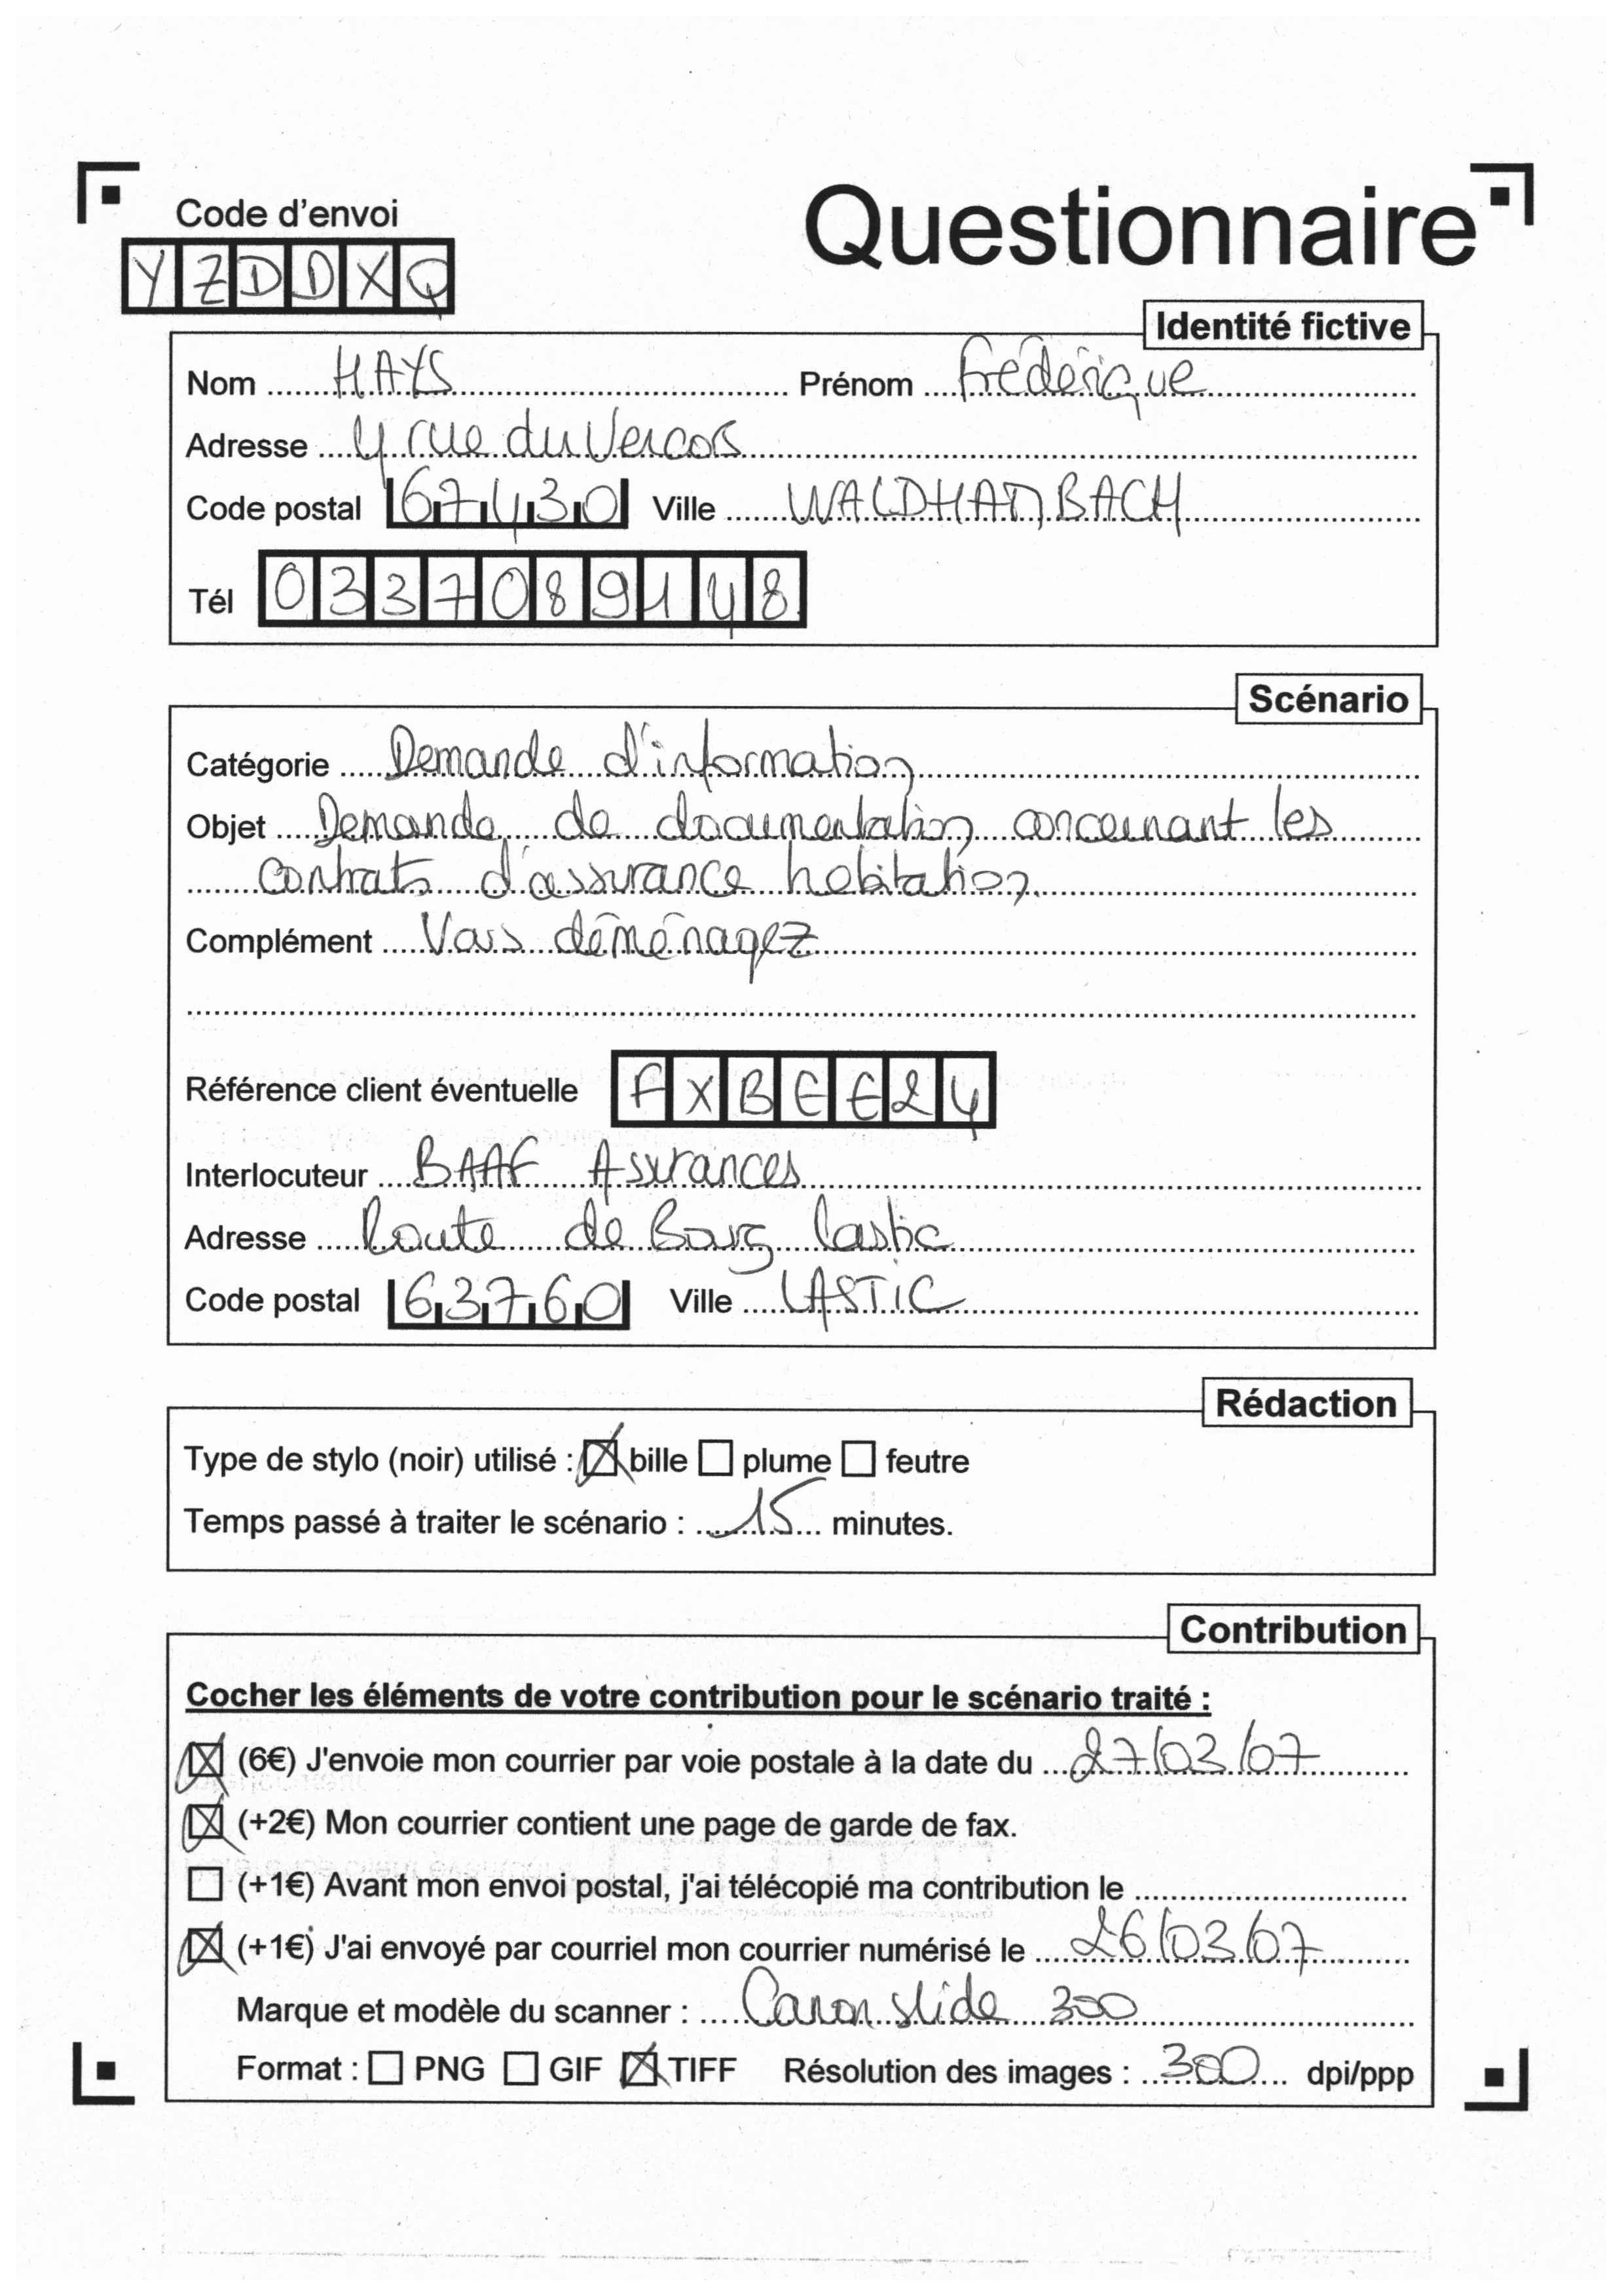 Questionnaire
Code d'envoi
YZDDXQ
Identité fictive
Nom HAYS Prénom Frédérique
Adresse 4 rue du Vercors
Code postal 67430 Ville WALDHAMBACH
Tél 0337089148
Scénario
Catégorie Demande d'information
Objet Demande de documentation concernant les
contrats d'assurance habitation.
Complément Vous déménagez
Référence client éventuelle FXBEE24
Interlocuteur BAAF Assurances
Adresse Route de Bourg Lastic
Code postal 63760 Ville LASTIC
Rédaction
Type de stylo (noir) utilisé : ☒ bille ☐ plume ☐ feutre
Temps passé à traiter le scénario : 15 minutes.
Contribution
Cocher les éléments de votre contribution pour le scénario traité :
☒ (6€) J'envoie mon courrier par voie postale à la date du 27/03/07
☒ (+2€) Mon courrier contient une page de garde de fax.
☐ (+1€) Avant mon envoi postal, j'ai télécopié ma contribution le
☒ (+1€) J'ai envoyé par courriel mon courrier numérisé le 26/03/07
Marque et modèle du scanner : Canon slide 300
Format : ☐ PNG ☐ GIF ☒ TIFF Résolution des images : 300 dpi/ppp